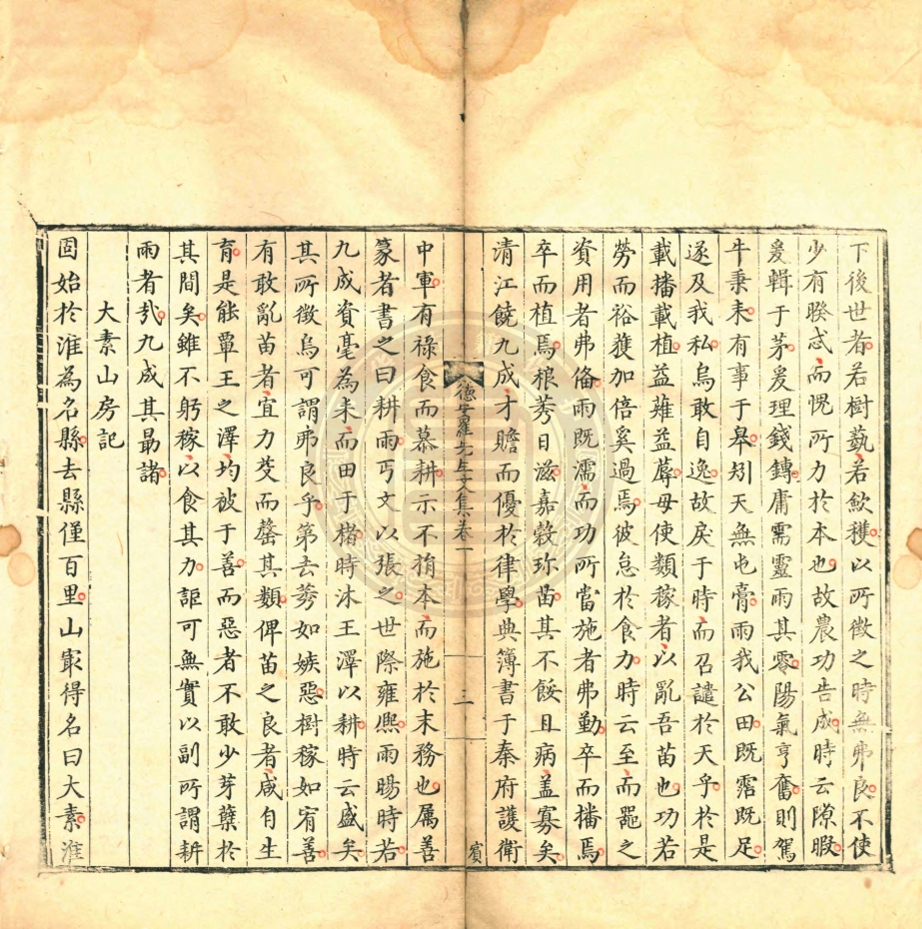 下後世者若樹蓺若歛穫以所徵之時無弗良不使
少有睽忒而愧所力於本也故農功告成時云隙暇
爰輯于茅爰理錢鎛庸需靈雨其零陽氣亨奮則駕
牛秉耒有事于皋矧天無屯膏雨我公田既霑既足
遂及我私烏敢自逸故戾于時而召譴於天乎於是
載播載植益薙益蓐毋使類稼者以亂吾苗也功若
勞而裕獲加倍奚過焉彼怠於食力時云至而罷之
資用者弗俻雨既濡而功所當施者弗勤卒而播焉
卒而植焉稂莠日滋嘉穀珎苗其不餒且病盖寡矣
清江饒九成才贍而優於律學典簿書于秦府護衛
德安羅先生文集卷一
三
賔
中軍有祿食而慕耕示不揹本而施於末務也属善
篆者書之曰耕雨丐文以張之世際雍熈雨暘時若
九成資毫為耒而田于楮時沐王澤以耕時云盛矣
其所徵烏可謂弗良乎第去莠如嫉惡樹稼如宥善
有敢亂苗者宜力芟而罄其類俾苗之良者咸自生
育是能覃王之澤均被于善而惡者不敢少芽蘖於
其間矣雖不躬稼以食其力詎可無實以副所謂耕
雨者㢤九成其勗諸
大素山房記
固始於淮為名縣去縣僅百里山㝡得名曰大素淮